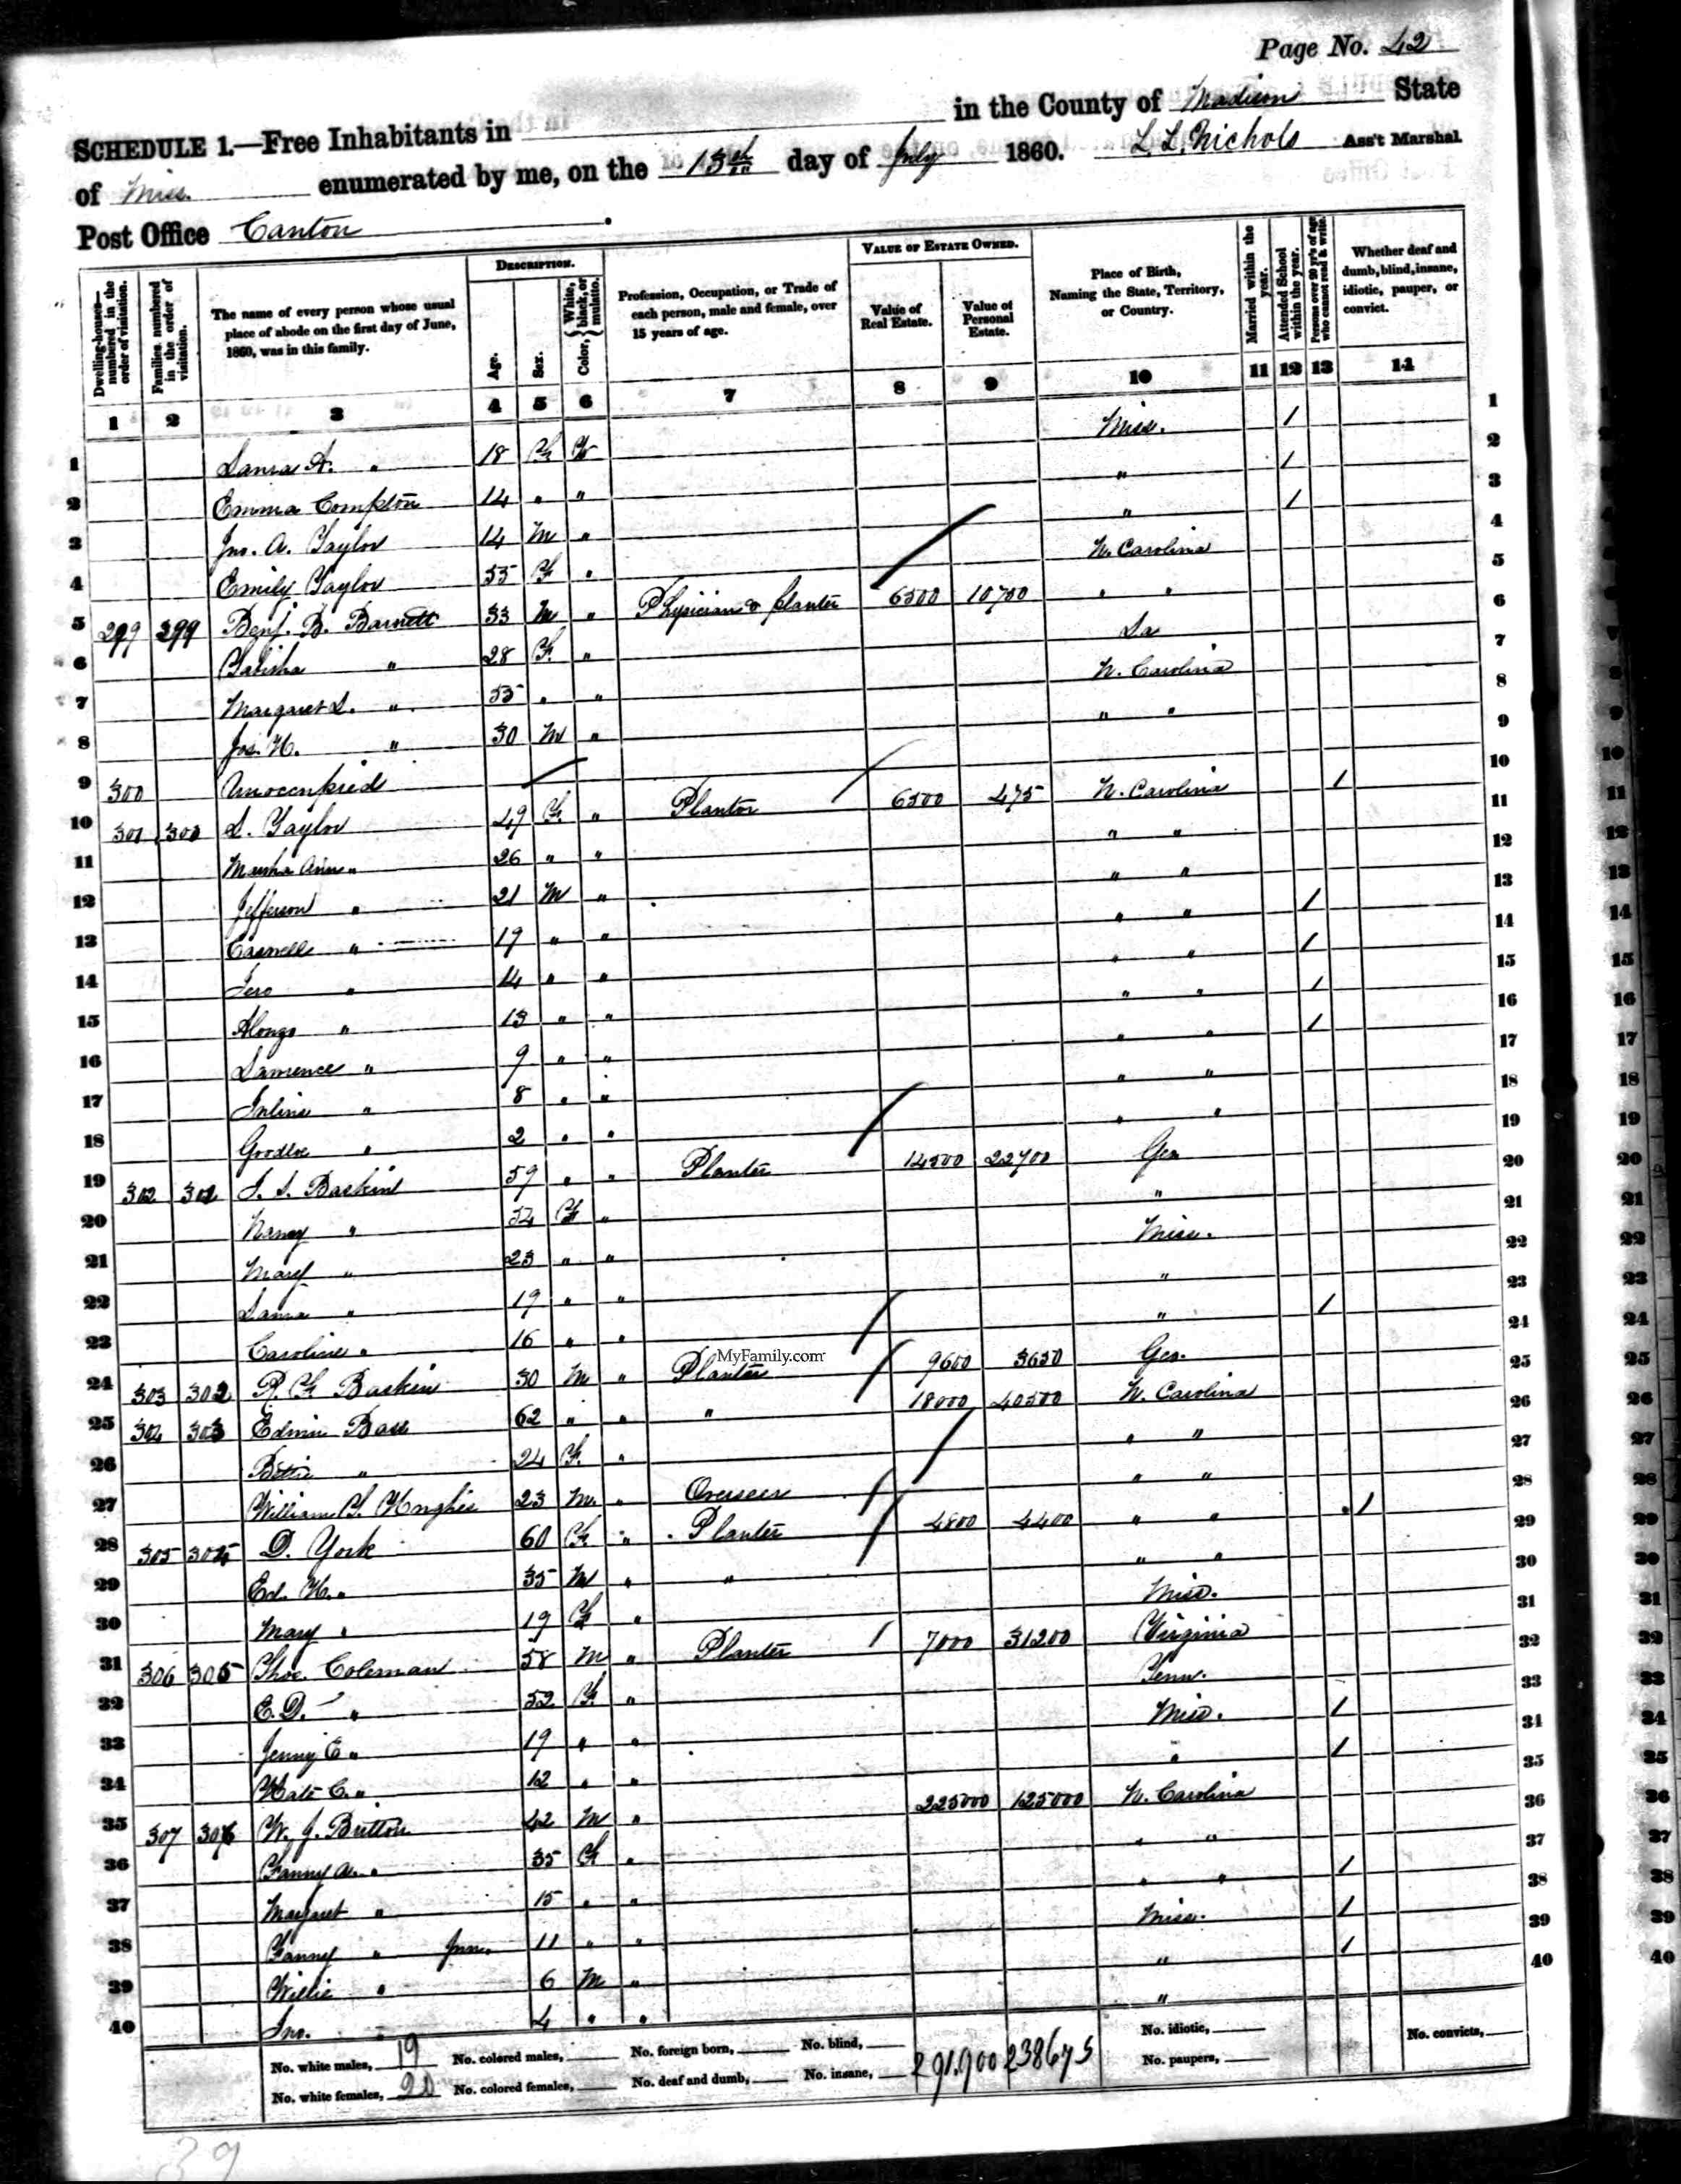 Page No. 42
SCHEDULE 1.—Free Inhabitants in in the County of Madison State
of Miss. enumerated by me, on the 13th day of July 1860. L. L. Nichols Ass't Marshal
Post Office Canton
Dwelling-houses—numbered in the order of visitation.
Families numbered in the order of visitation.
The name of every person whose usual place of abode on the first day of June, 1860, was in this family.
DESCRIPTION.
Age.
Sex.
Color, { White, black, or mulatto.
Profession, Occupation, or Trade of each person, male and female, over 15 years of age.
VALUE OF ESTATE OWNED.
Value of Real Estate.
Value of Personal Estate.
Place of Birth, Naming the State, Territory, or Country.
Married within the year.
Attended School within the year.
Persons over 20 y'rs of age who cannot read & write.
Whether deaf and dumb, blind, insane, idiotic, pauper, or convict.
1 2 3 4 5 6 7 8 9 10 11 12 13 14
1 Laura A. " 18 F W Miss. / 1
2 Emma Compton 14 " " " / 2
3 Jno. A. Taylor 14 M " " / 3
4 Emily Taylor 55 F " N. Carolina 4
5 299 299 Benj. B. Barnett 33 M " Physician & Planter 6500 10700 " " 5
6 " 28 F. " La 6
7 Margaret L. " 55 " " N. Carolina 7
8 Jos. H. " 30 M " " " 8
9 300 Unoccupied 9
10 301 300 L. Taylor 49 F " Planter 6500 475 N. Carolina / 10
11 Martha Ann " 26 " " " " 11
12 Jefferson " 21 M " " " 12
13 Caswell " 19 " " " " / 13
14 " 14 " " " " / 14
15 Alonzo " 13 " " " " / 15
16 Lawrence " 9 " " " " / 16
17 " 8 " " " " 17
18 Goodloe " 2 " " " " 18
19 302 301 Baskin 59 " " Planter 14500 22700 Geo 19
20 Nancy " 54 F " " 20
21 Mary " 23 " " Miss. 21
22 Laura " 19 " " " 22
23 Caroline " 16 " " " / 23
24 303 302 Baskin 30 M " Planter 9600 3650 Geo. 24
MyFamily.com
25 304 303 Edwin Bass 62 " " " 18000 40500 N. Carolina 25
26 Bettie " 24 F. " " " 26
27 William Hughes 23 M. " Overseer " " 27
28 305 304 D. York 60 F " Planter 4800 4400 " " / 28
29 Ed. H. " 35 M " " " " 29
30 Mary " 19 F " Miss. 30
31 306 305 Thos. Coleman 58 M " Planter 7000 31200 Virginia 31
32 E. D. " 52 F. " Tenn. 32
33 Jenny E " 19 " " Miss. / 33
34 Kate C. " 12 " " " / 34
35 307 306 W. J. Britton 42 M " 225000 125000 N. Carolina 35
36 Fanny A. " 35 F " " " 36
37 Margaret " 15 " " " " / 37
38 Fanny " Junr. 11 " " Miss. / 38
39 Willie " 6 M " " / 39
40 Jno. " 4 " " " 40
No. white males, 19 No. colored males, No. foreign born, No. blind, 291,900 238675 No. idiotic, No. convicts,
No. white females, 20 No. colored females, No. deaf and dumb, No. insane, No. paupers,
39